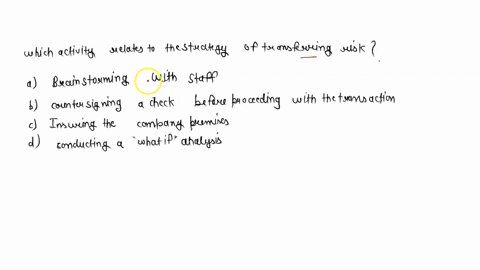 which activity relates to the strategy of transferring risk?
a) Brainstorming with staff
b) countersigning a check before proceeding with the transaction
c) Insuring the company premises
d) conducting a "what if" analysis